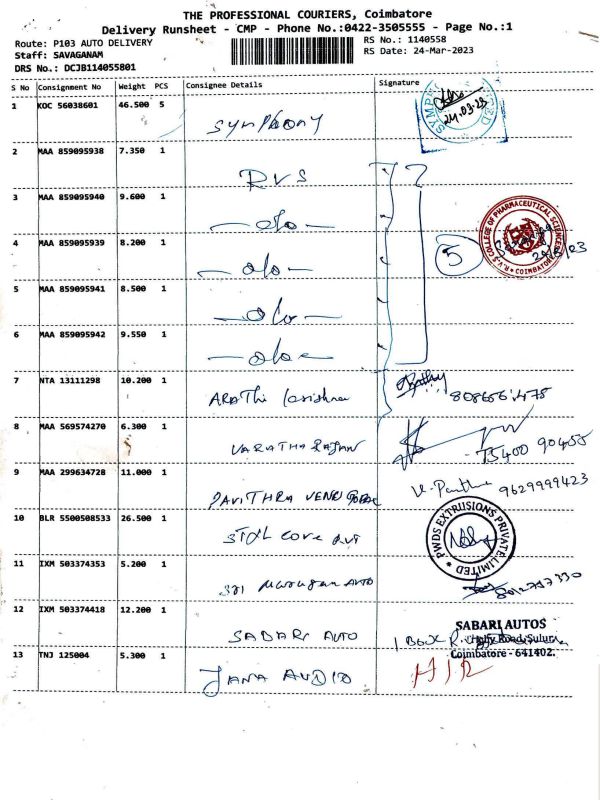 THE PROFESSIONAL COURIERS, Coimbatore
Delivery Runsheet - CMP - Phone No.:0422-3505555 - Page No.:1
Route: P103 AUTO DELIVERY
RS No.: 1140558
Staff: SAVAGANAM
RS Date: 24-Mar-2023
DRS No.: DCJB114055801
S No Consignment No Weight PCS Consignee Details Signature
1 KOC 56038601 46.500 5 Symphony
24.03.23
2 MAA 859095938 7.350 1 RVS
3 MAA 859095940 9.600 1
4 MAA 859095939 8.200 1
5
R.V.S COLLEGE OF PHARMACEUTICAL SCIENCES
COIMBATORE
5 MAA 859095941 8.500 1
6 MAA 859095942 9.550 1
7 NTA 13111298 10.200 1 ARAThi
8 MAA 569574270 6.300 1 VARATHARAJAN
75400 90455
9 MAA 299634728 11.000 1 PAVITHRA
9629999423
10 BLR 5500508533 26.500 1
PWDS EXTRUSIONS PRIVATE LIMITED
11 IXM 503374353 5.200 1 Sri Murugan AUTO
12 IXM 503374418 12.200 1 SABARI AUTO
SABARI AUTOS
Coimbatore - 641402.
13 TNJ 125004 5.300 1 JANA AUDIO